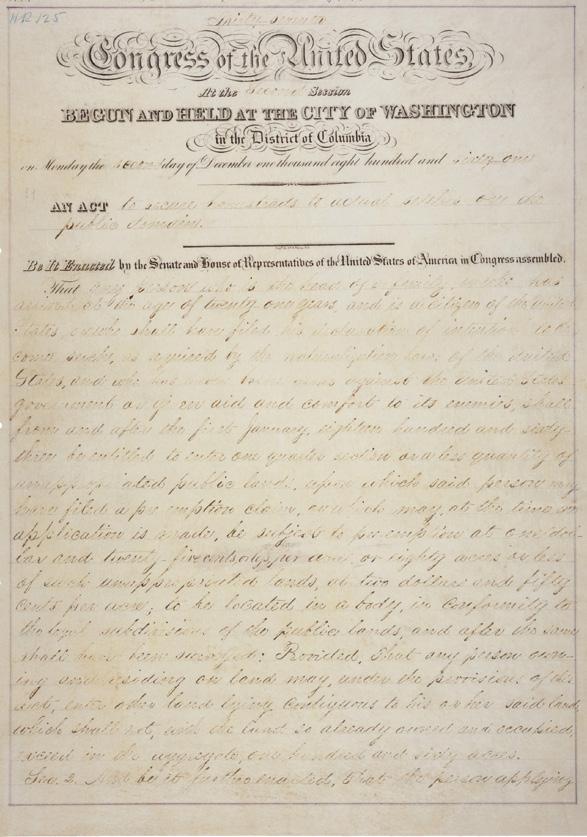 HR 125
Thirty-Seventh
Congress of the United States,
At the Second Session
BEGUN AND HELD AT THE CITY OF WASHINGTON
in the District of Columbia
on Monday the second day of December one thousand eight hundred and sixty-one
AN ACT to secure homesteads to actual settlers on the
public domain.
Be It Enacted by the Senate and House of Representatives of the United States of America in Congress assembled.
That any person who is the head of a family, or who has
arrived at the age of twenty one years, and is a citizen of the United
States, or who shall have filed his declaration of intention to be
come such, as required by the naturalization laws of the United
States, and who has never borne arms against the United States
government or given aid and comfort to its enemies, shall
from and after the first January, eighteen hundred and sixty
three be entitled to enter one quarter section or a less quantity of
unappropriated public lands, upon which said person may
have filed a pre emption claim, or which may, at the time
application is made, be subject to pre emption at one dol-
lar and twenty-five cents, or less, per acre; or eighty acres or less
of such unappropriated lands, at two dollars and fifty
cents per acre; to be located in a body, in conformity to
the legal subdivisions of the public lands, and after the same
shall have been surveyed: Provided, That any person own-
ing and residing on land may, under the provisions of this
act, enter other land lying contiguous to his or her said land,
which shall not, with the land so already owned and occupied,
exceed in the aggregate one hundred and sixty acres.
Sec. 2. And be it further enacted, That the person applying